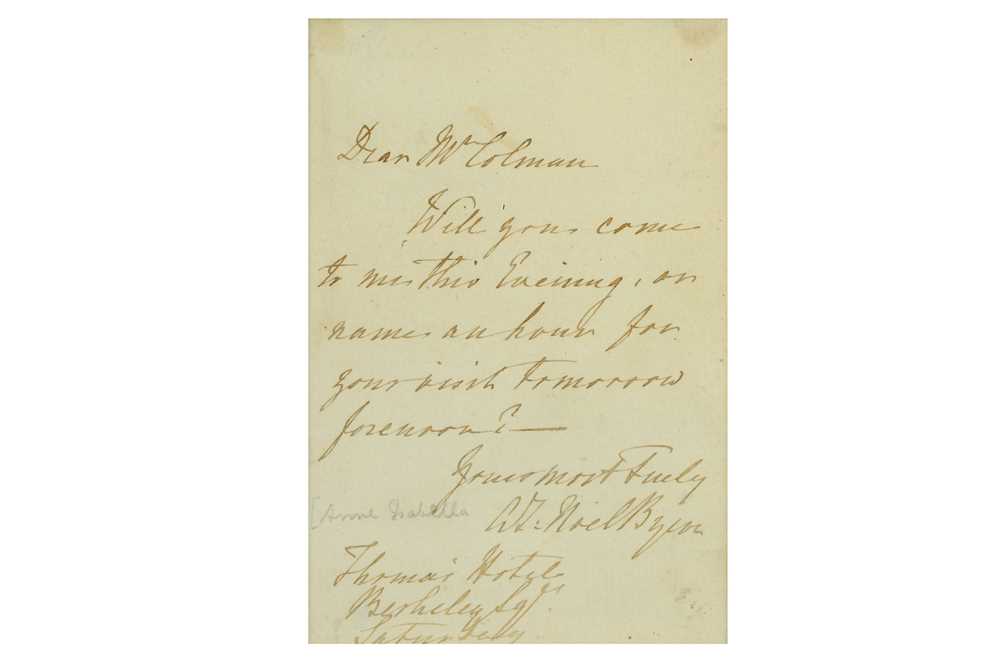 Dear Mr Colman
Will you come
to me this Evening, or
name an hour for
your visit tomorrow
forenoon? —
Yours most truly
[Anne Isabella
AI: Noel Byron
Thomas Hotel
Berkeley Sqr.
Saturday